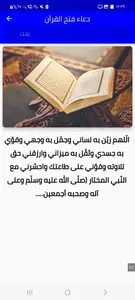 ١٢:٢٩
دعاء فتح القرآن
بحث
اللهم زيّن به لساني وجمّل به وجهي وقوّي
به جسدي وثقّل به ميزاني وارزقني حق
تلاوته وقوّني على طاعتك واحشرني مع
النّبي المختار (صلّى الله عليه وسلّم وعلى
آله وصحبه أجمعين....